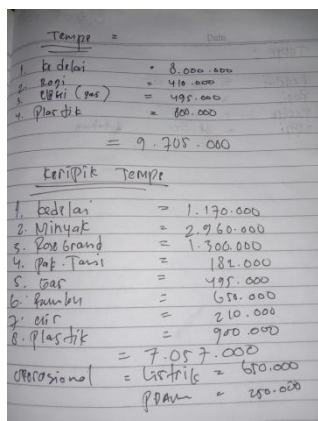 Tempe =
Date
1. kedelai = 8.000.000
2. Ragi = 410.000
3. (gas) = 495.000
4. Plastik = 800.000
= 9.705.000
Keripik Tempe
1. kedelai = 1.170.000
2. Minyak = 2.960.000
3. Rose Grand = 1.300.000
4. pak. Tani = 182.000
5. Gas = 495.000
6. bumbu = 650.000
7. = 210.000
8. plastik = 900.000
= 7.057.000
operasional = Listrik = 650.000
PDAM = 250.000